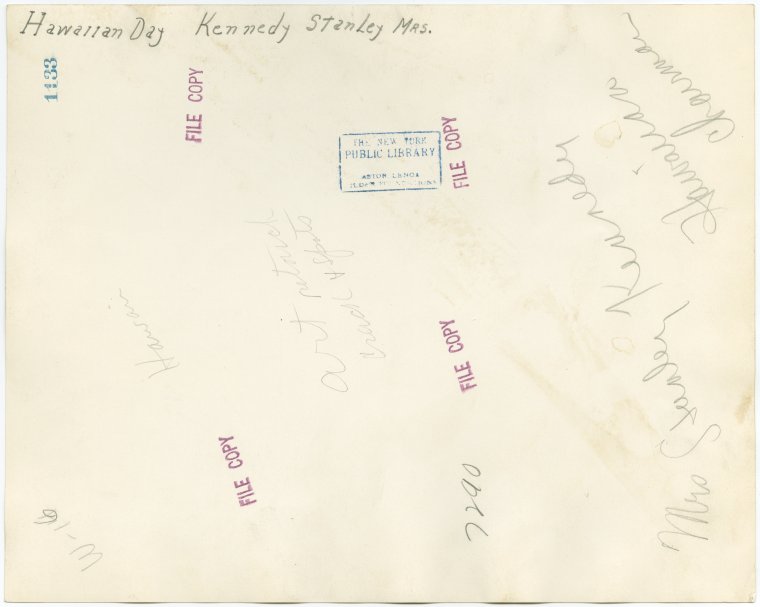 Hawaiian Day Kennedy Stanley Mrs.
1133
FILE COPY
FILE COPY
THE NEW YORK
PUBLIC LIBRARY
ASTOR, LENOX
TILDEN FOUNDATIONS
Mrs Stanley Kennedy
Hawaiian
Chairman
art retouch
crack & spots
Hawaii
FILE COPY
FILE COPY
7290
W-16